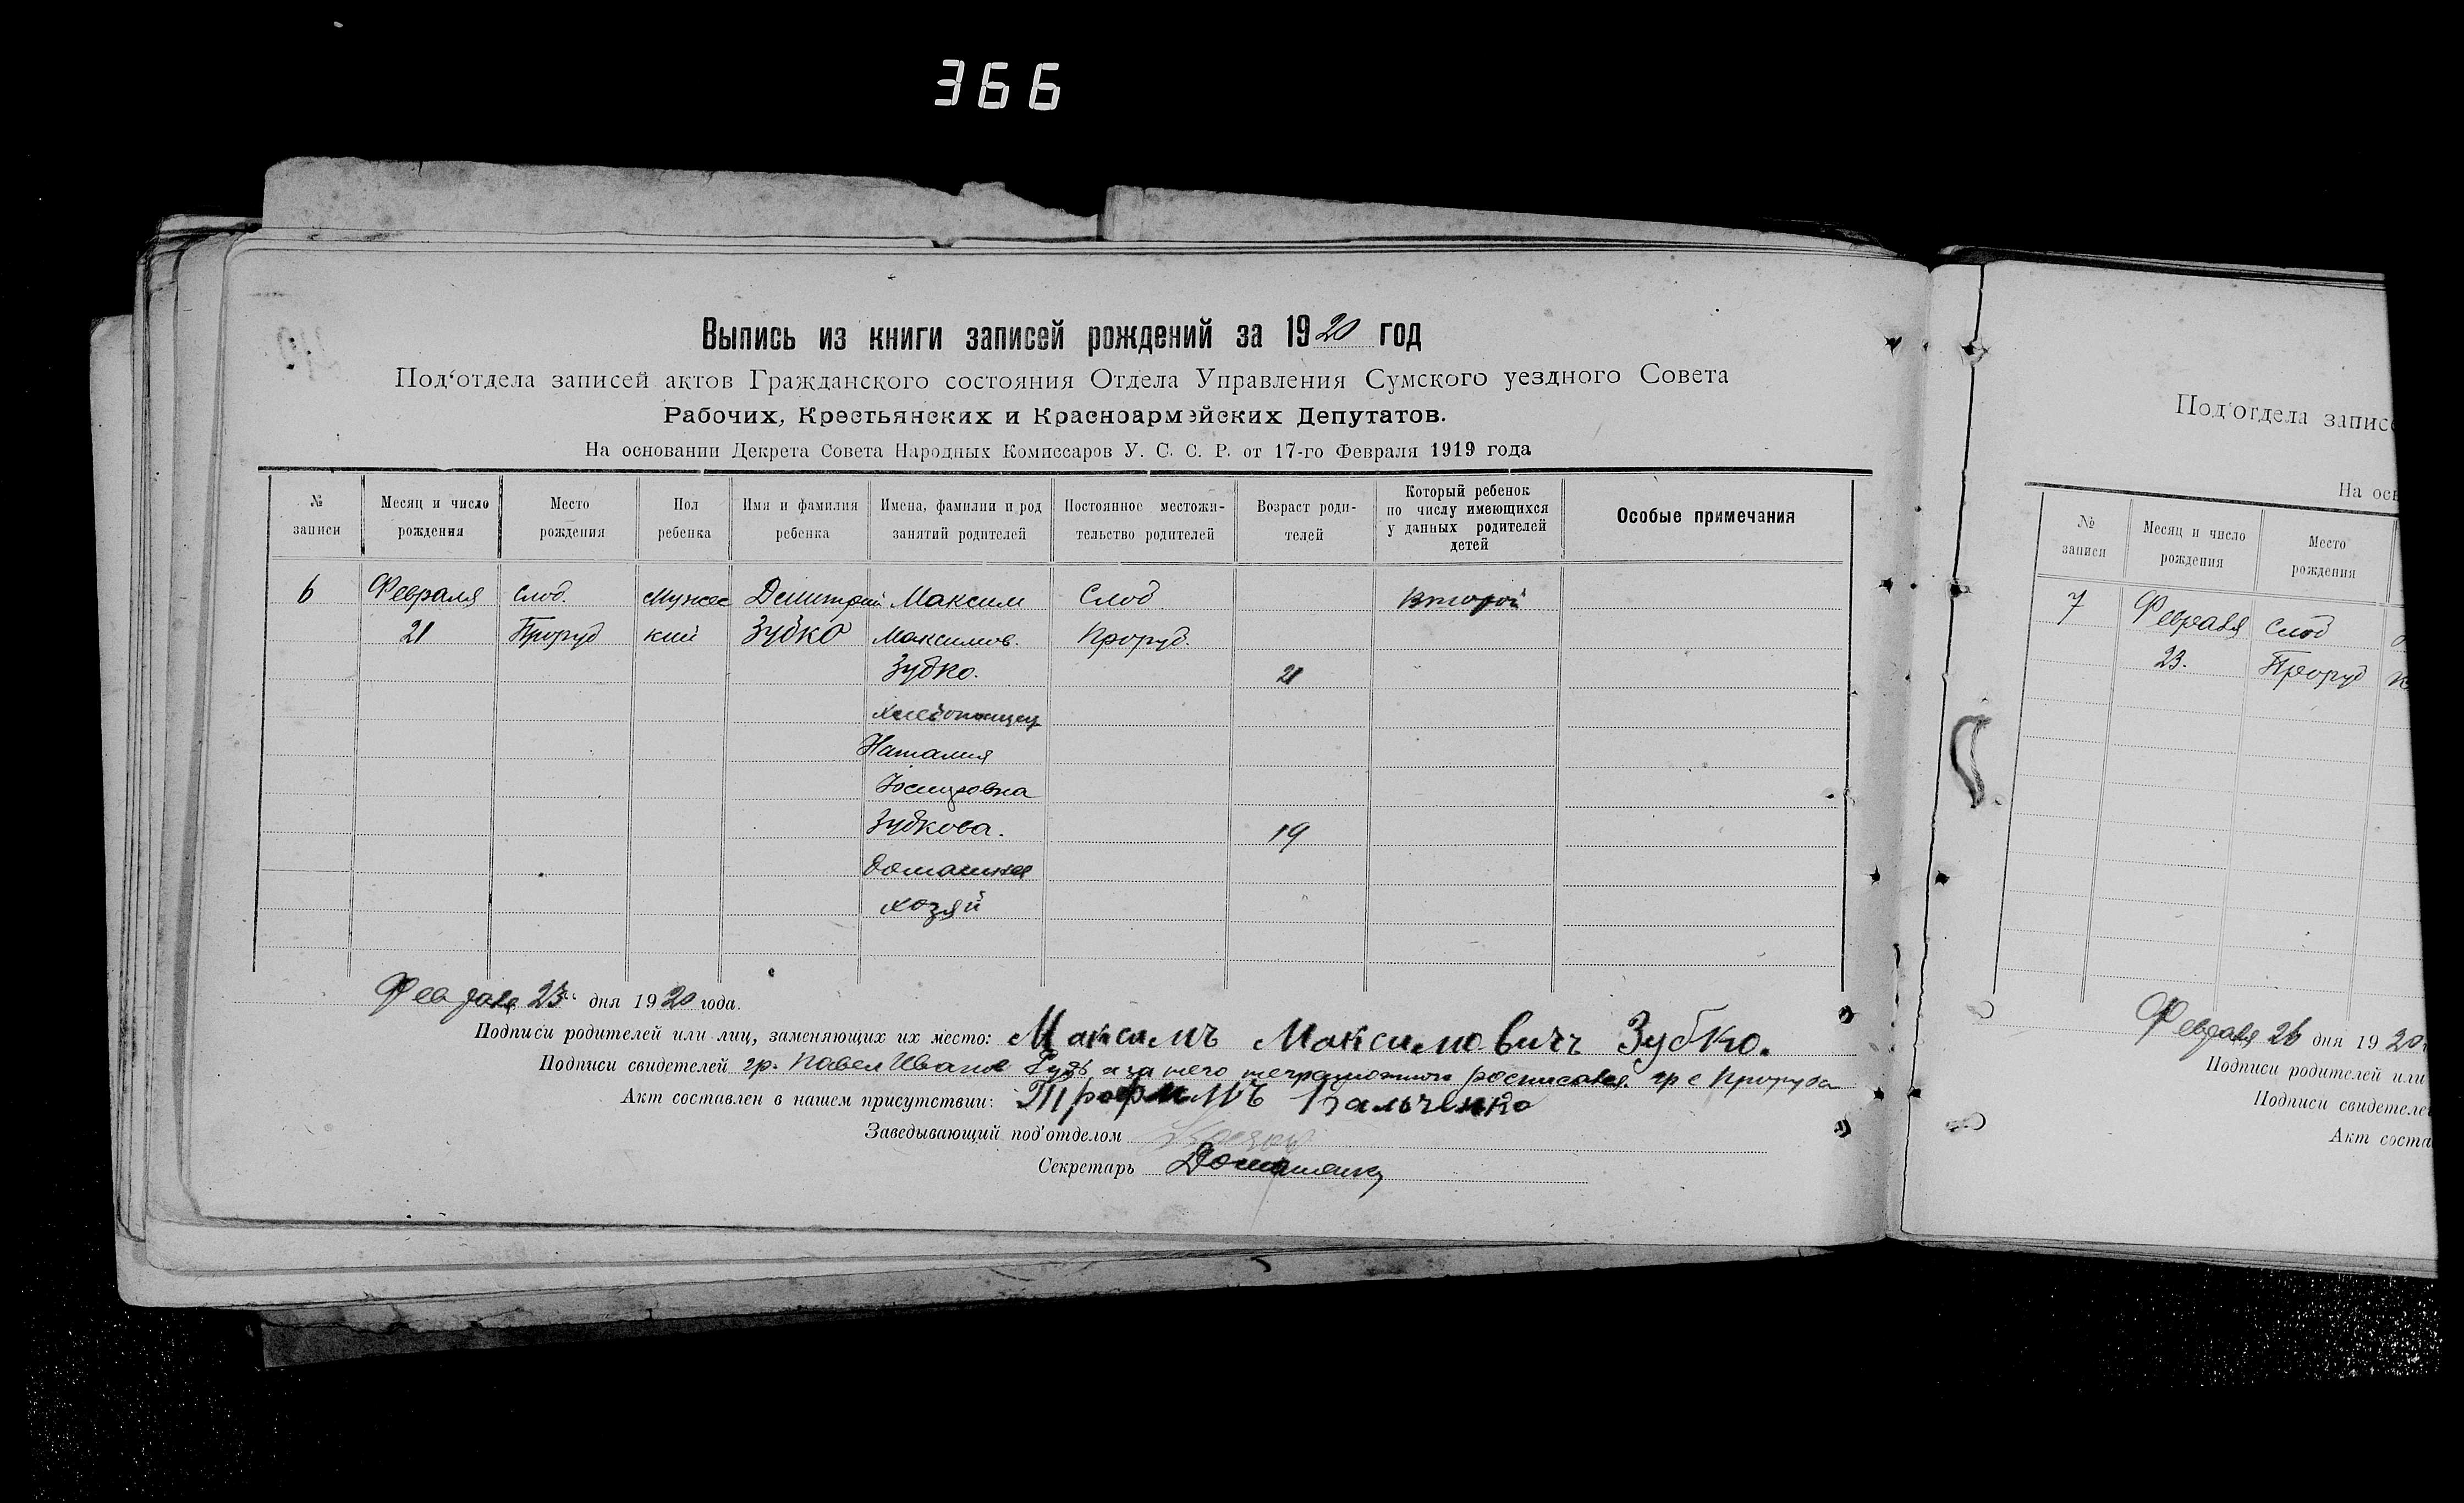 366
Выпись из книги записей рождений за 1920 год
Под‘отдела записей актов Гражданского состояния Отдела Управления Сумского уездного Совета
Рабочих, Крестьянских и Красноармейских Депутатов.
На основании Декрета Совета Народных Комиссаров У. С. С. Р. от 17-го Февраля 1919 года
№ записи
Месяц и число рождения
Место рождения
Пол ребенка
Имя и фамилия ребенка
Имена, фамилии и род занятий родителей
Постоянное местожительство родителей
Возраст родителей
Который ребенок по числу имеющихся у данных родителей детей
Особые примечания
6 Февраля Слод. Мужес Димитрий Максим Слод Второй
21 Проруб кий Зубко Максимов. Проруб.
Зубко. 21
хлебопашец
Наталия
Зубкова. 19
домашняя
хозяй
Февраля 23 дня 1920 года.
Подписи родителей или лиц, заменяющих их место: Максимъ Максимовичъ Зубко.
Подписи свидетелей гр. Павел Иванов а за него неграмотного росписался гр с Проруба
Акт составлен в нашем присутствии: Трофимъ Вальченко
Заведывающий под'отделом
Секретарь
Под'отдела записе
На осн
№ записи
Месяц и число рождения
Место рождения
7 Февраля Слод
23. Проруб
Февраля 26 дня 1920
Подписи родителей или
Подписи свидетеле
Акт соста